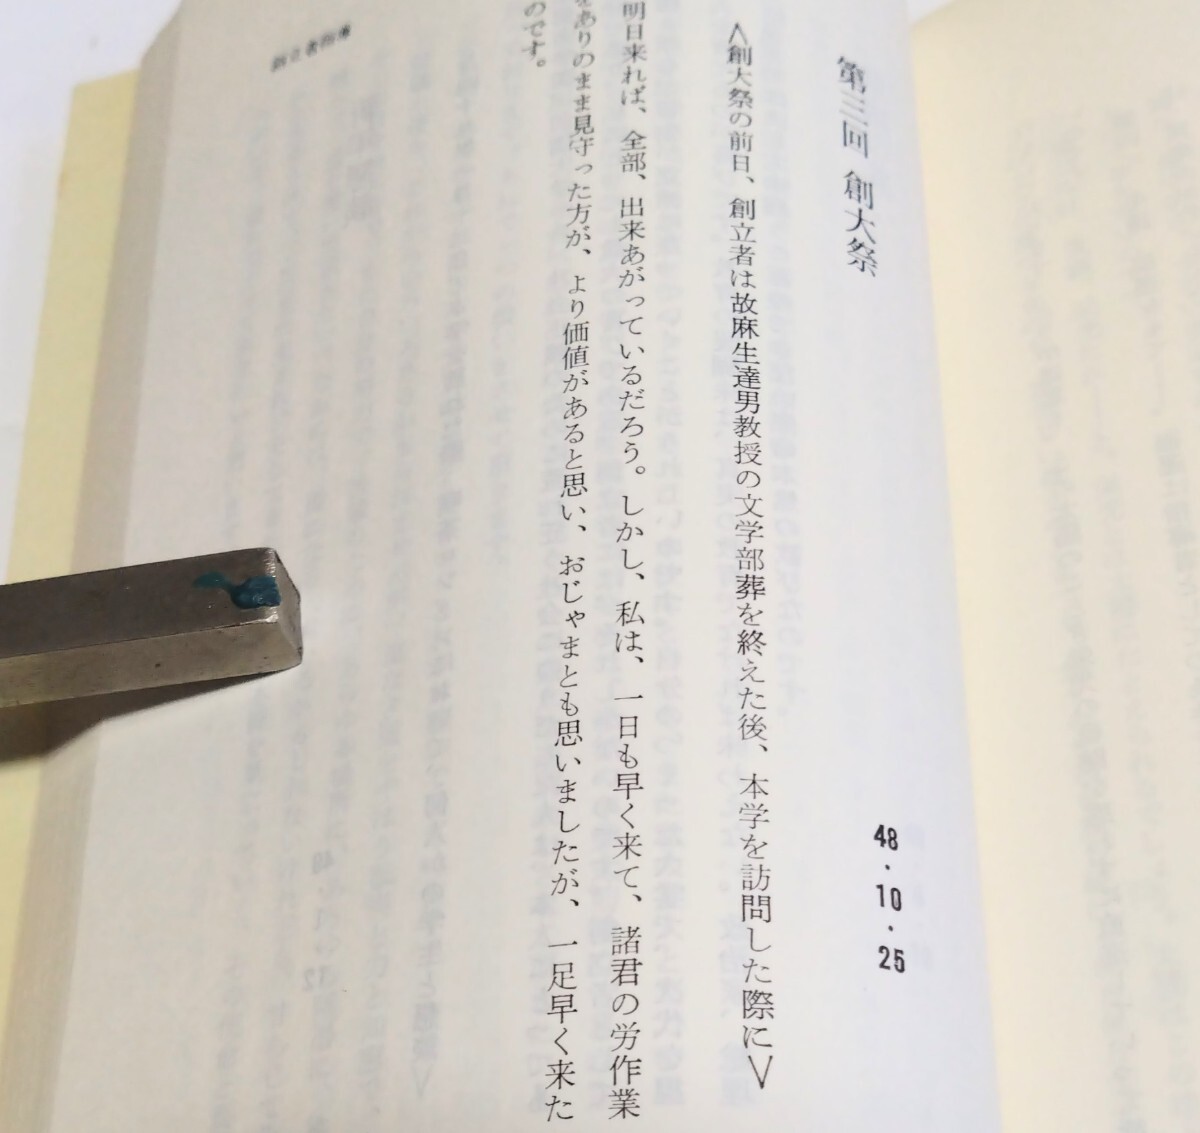 第三回 創大祭
48・10・25
＜創大祭の前日、創立者は故麻生達男教授の文学部葬を終えた後、本学を訪問した際に＞
明日来れば、全部、出来あがっているだろう。しかし、私は、一日も早く来て、諸君の労作業
をありのまま見守った方が、より価値があると思い、おじゃまとも思いましたが、一足早く来た
のです。
創立者指導